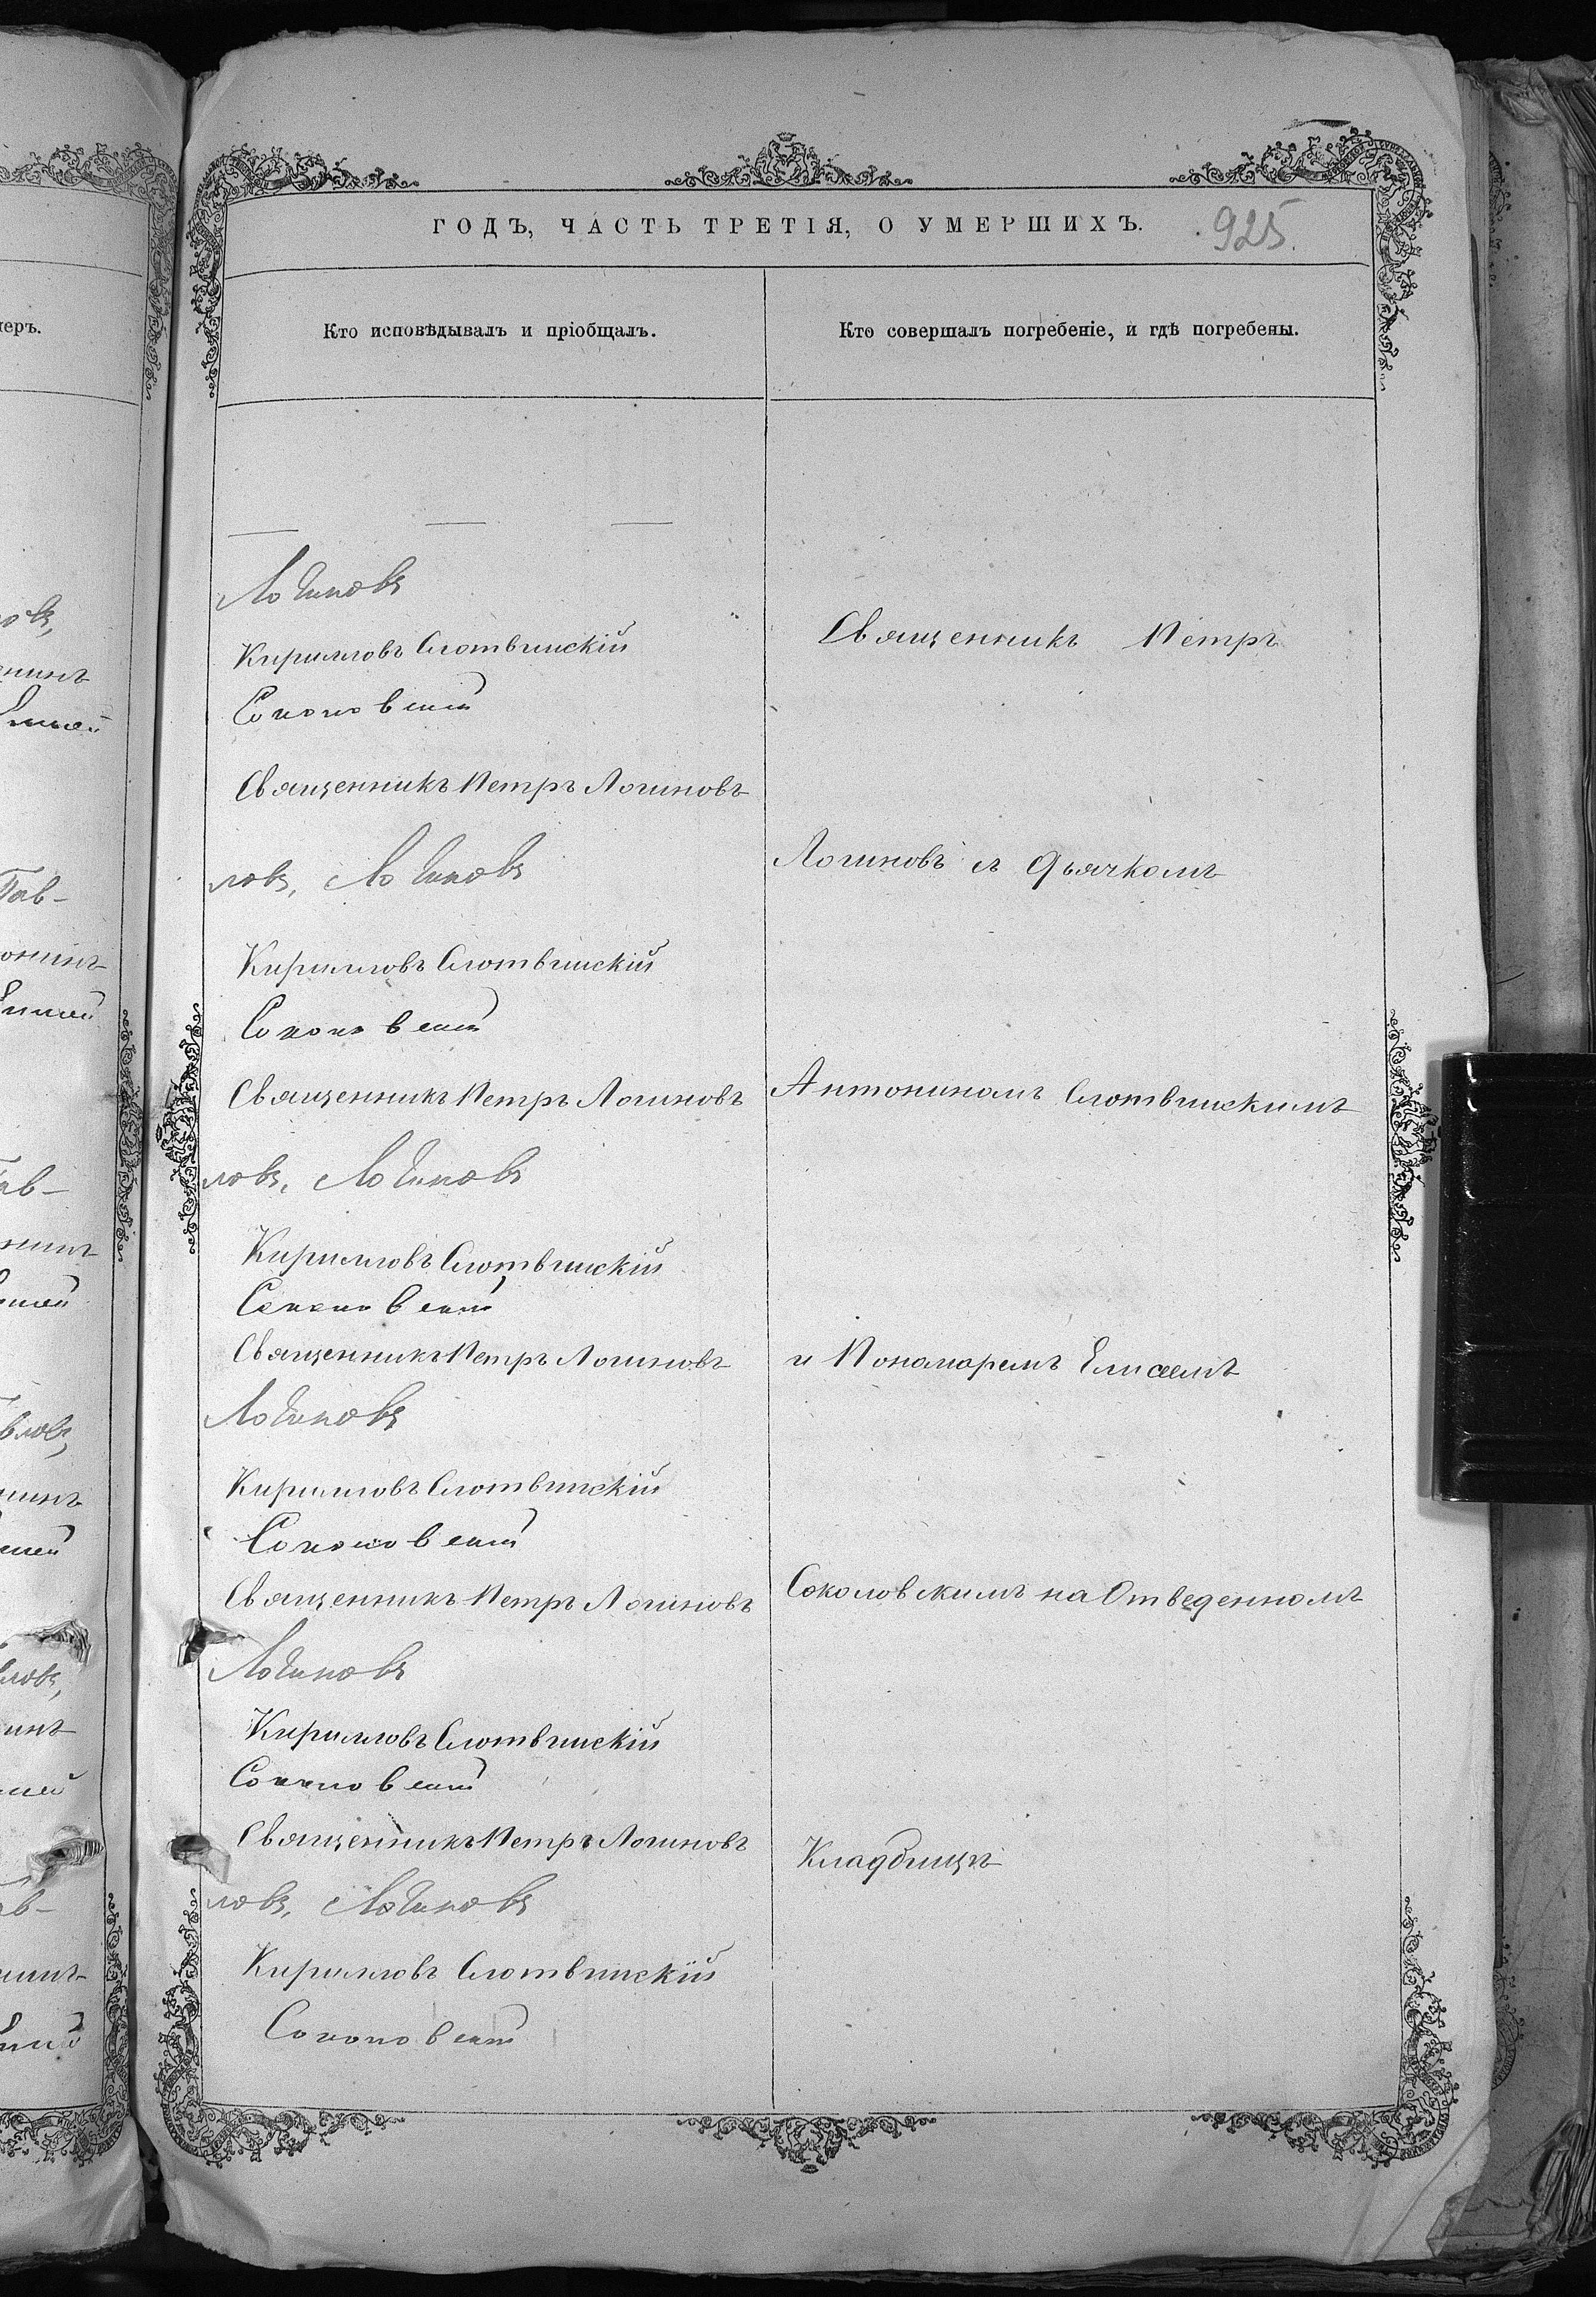 ГОДЪ, ЧАСТЬ ТРЕТІЯ, О УМЕРШИХЪ.
925.
меръ.
Кто исповѣдывалъ и пріобщалъ.
Кто совершалъ погребеніе, и гдѣ погребены.
Логиновъ
Кирилловъ Слотвинскій
Соколовскій
Священникъ Петръ Логиновъ
ловъ, Логиновъ
Кирилловъ Слотвинскій
Соколовскій
Священникъ Петръ Логиновъ
ловъ, Логиновъ
Кирилловъ Слотвинскій
Соколовскій
Священникъ Петръ Логиновъ
Логиновъ
Кирилловъ Слотвинскій
Соколовскій
Священникъ Петръ Логиновъ
Логиновъ
Кирилловъ Слотвинскій
Соколовскій
Священникъ Петръ Логиновъ
ловъ, Логиновъ
Кирилловъ Слотвинскій
Соколовскій
Священникъ Петръ
Логиновъ съ Дьячкомъ
Антониномъ Слотвинскимъ
и Пономаремъ Елисеемъ
Соколовскимъ на Отведенномъ
Кладбищѣ